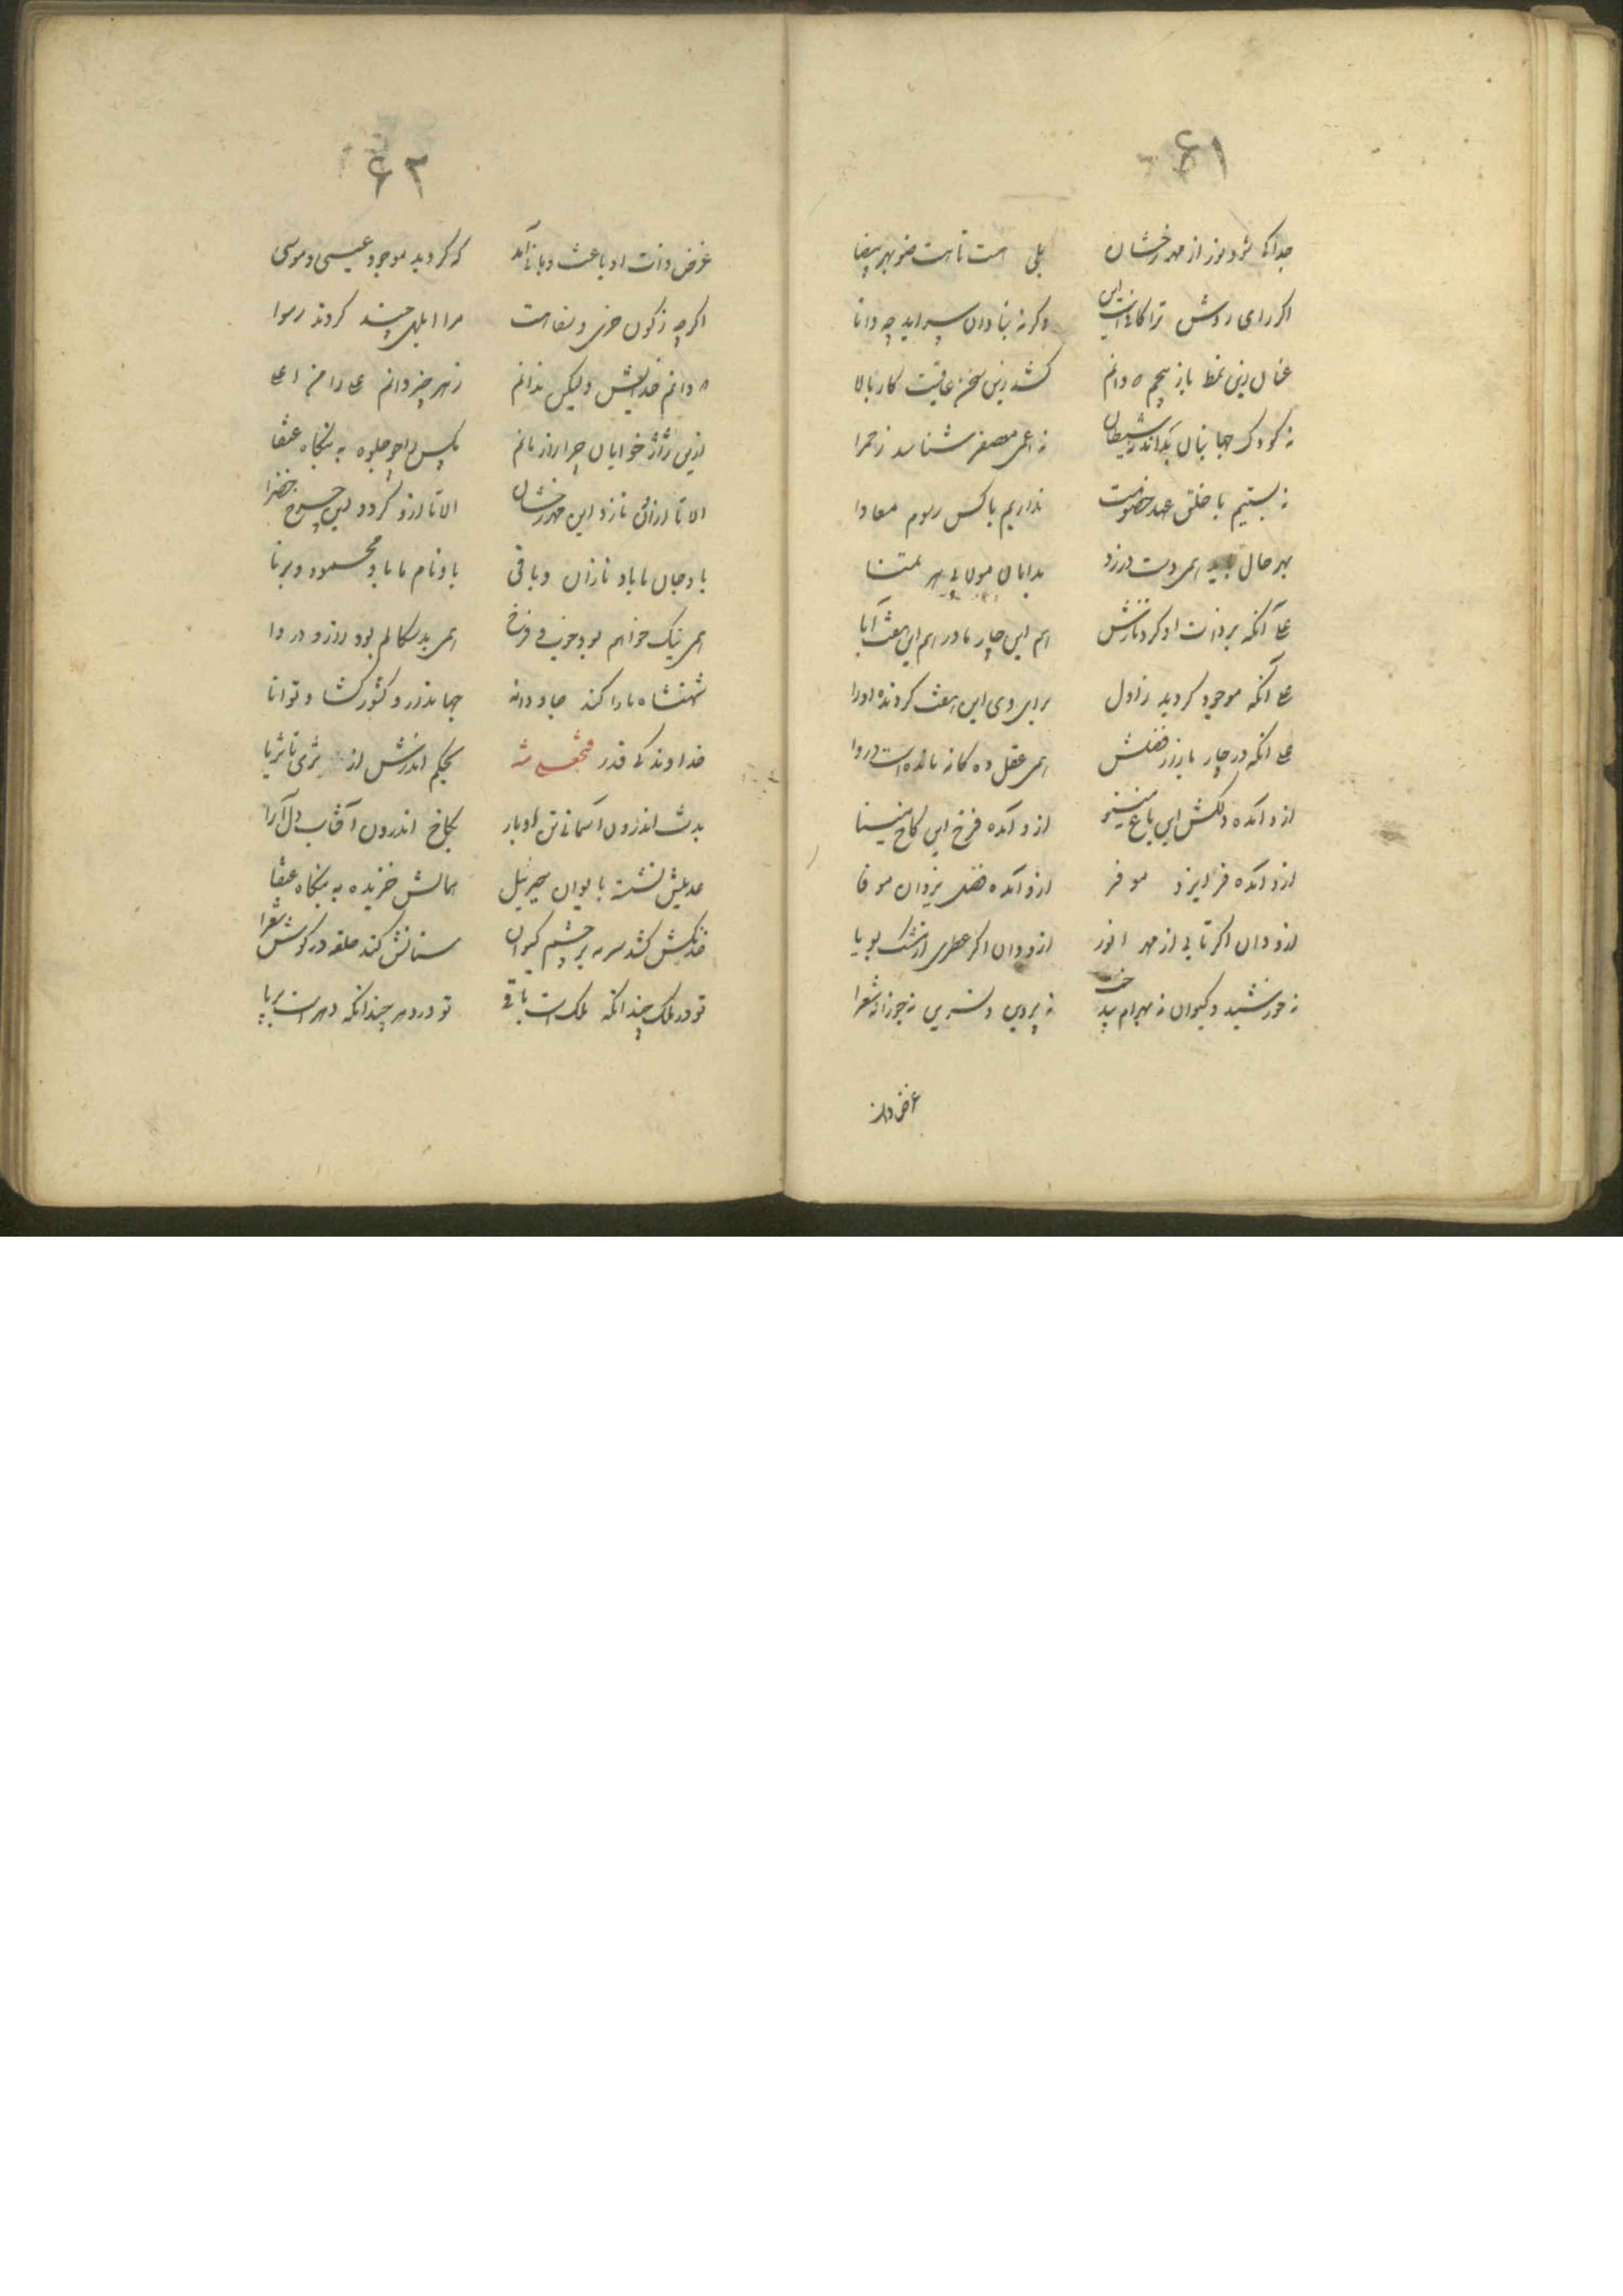 ۶۱
جدا کی شود نور از مهر رخشان بلی هست تا هست ضو بهر بیضا
اگر رای روشن ترا کافیست این وگرنه بنادان سراید چه دانا
عنان زین نمط باز پیچم که دانم کشد زین سخن عاقبت کار بالا
نه کودک جهانبان نه اعمی معصفر شناسد ز حمرا
نه بستیم با خلق عهد خصومت نداریم با کس رسوم معادا
بهر حال همی دست مولای
علی آنکه بر ذات او کرد نازش هم این چار مادر هم این هفت آبا
علی آنکه موجود گردید ز اول برای وی این هفت کردنده
علی آنکه در چار فضلش همی عقل ده گانه مانده است دروا
ازو آمده دلکش این باغ مینو ازو آمده فرخ این کاخ مینا
ازو آمده فر ایزد موفر ازو آمده فضل یزدان موفا
ازو دان اگر تابی از مهر انور ازو دان اگر عطری از مشک بویا
نه خورشید و کیوان نه بهرام نه پروین و نسرین نه جوزا نه شعرا
غرض ذات
۶۲
غرض ذات او باعث آمد که گردید موجود عیسی و موسی
اگرچه ز گون خری و سفاهت مرا ابلهی چند کردند رسوا
دانم خدایش ولیکن ندانم ز هر چیز دانم علی را من اعلی
ازین ژاژ خوایان چرا باز مانم مگس را چو جلوه به بنگاه عنقا
الا تا ازان تازد این مهر رخشان الا تا ازو گردد این چرخ خضرا
بادجان ما باد نازان و باقی بادنام ما باد محمود و برنا
همی نیک خواهم بود جفت فرخ همی بدسگالم بود زرد و دروا
شهنشاه ما را کند جاودانه جهاندار و کشورگشا و توانا
خداوند کی قدر فتحعلی شه بحکم اندرش از ثری تا ثریا
بدشت اندرون آسمانی بکاخ اندرون آفتاب دل آرا
عدیلش نشسته بایوان جبریل همالش خزیده به بنگاه عنقا
خدنگش کشد سرمه بر چشم کیوان سنانش کند حلقه در گوش شعرا
تو در ملک چندانکه ملک است باقی تو در دهر چندانکه دهر است برپا